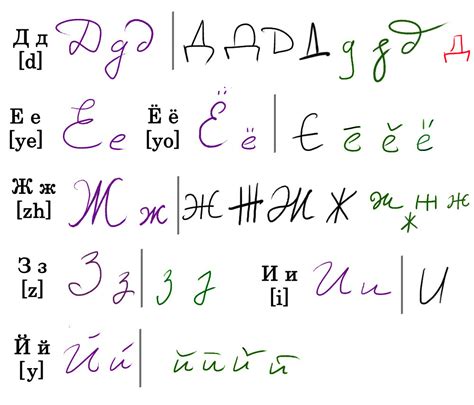 Д д Д д д | Д Д D Д д д д д
[d]
Е е Е е Ё ё Ё ё | Є ē ě ё
[ye] [yo]
Ж ж Ж ж | Ж Ж Ж Ж ж ж ж ж
[zh]
З з З з | з з И и И и | И
[z] [i]
Й й Й й й й й й
[y]